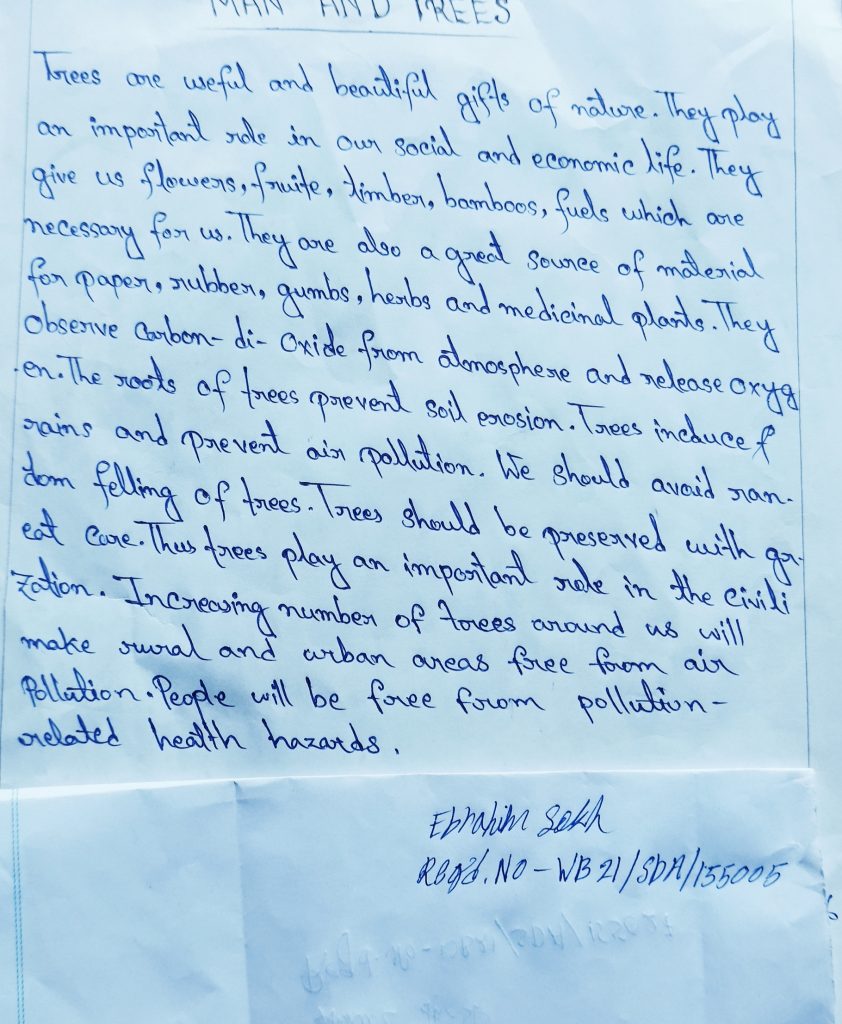 MAN AND TREES
Trees are useful and beautiful gifts of nature. They play
an important role in our social and economic life. They
give us flowers, fruite, timber, bamboos, fuels which are
necessary for us. They are also a great source of material
for paper, rubber, gumbs, herbs and medicinal plants. They
Observe Carbon-di-Oxide from atmosphere and release oxyg
-en. The roots of trees prevent soil erosion. Trees incduce f
rains and prevent air pollution. We should avoid ran-
dom felling of trees. Trees should be preserved with gr-
eat Care. Thus trees play an important role in the civili
zation. Increasing number of trees around us will
make rural and urban areas free from air
Pollution. People will be free from pollution-
related health hazards.
Ebrahim Sekh
Regd. NO - WB21/SDA/155005